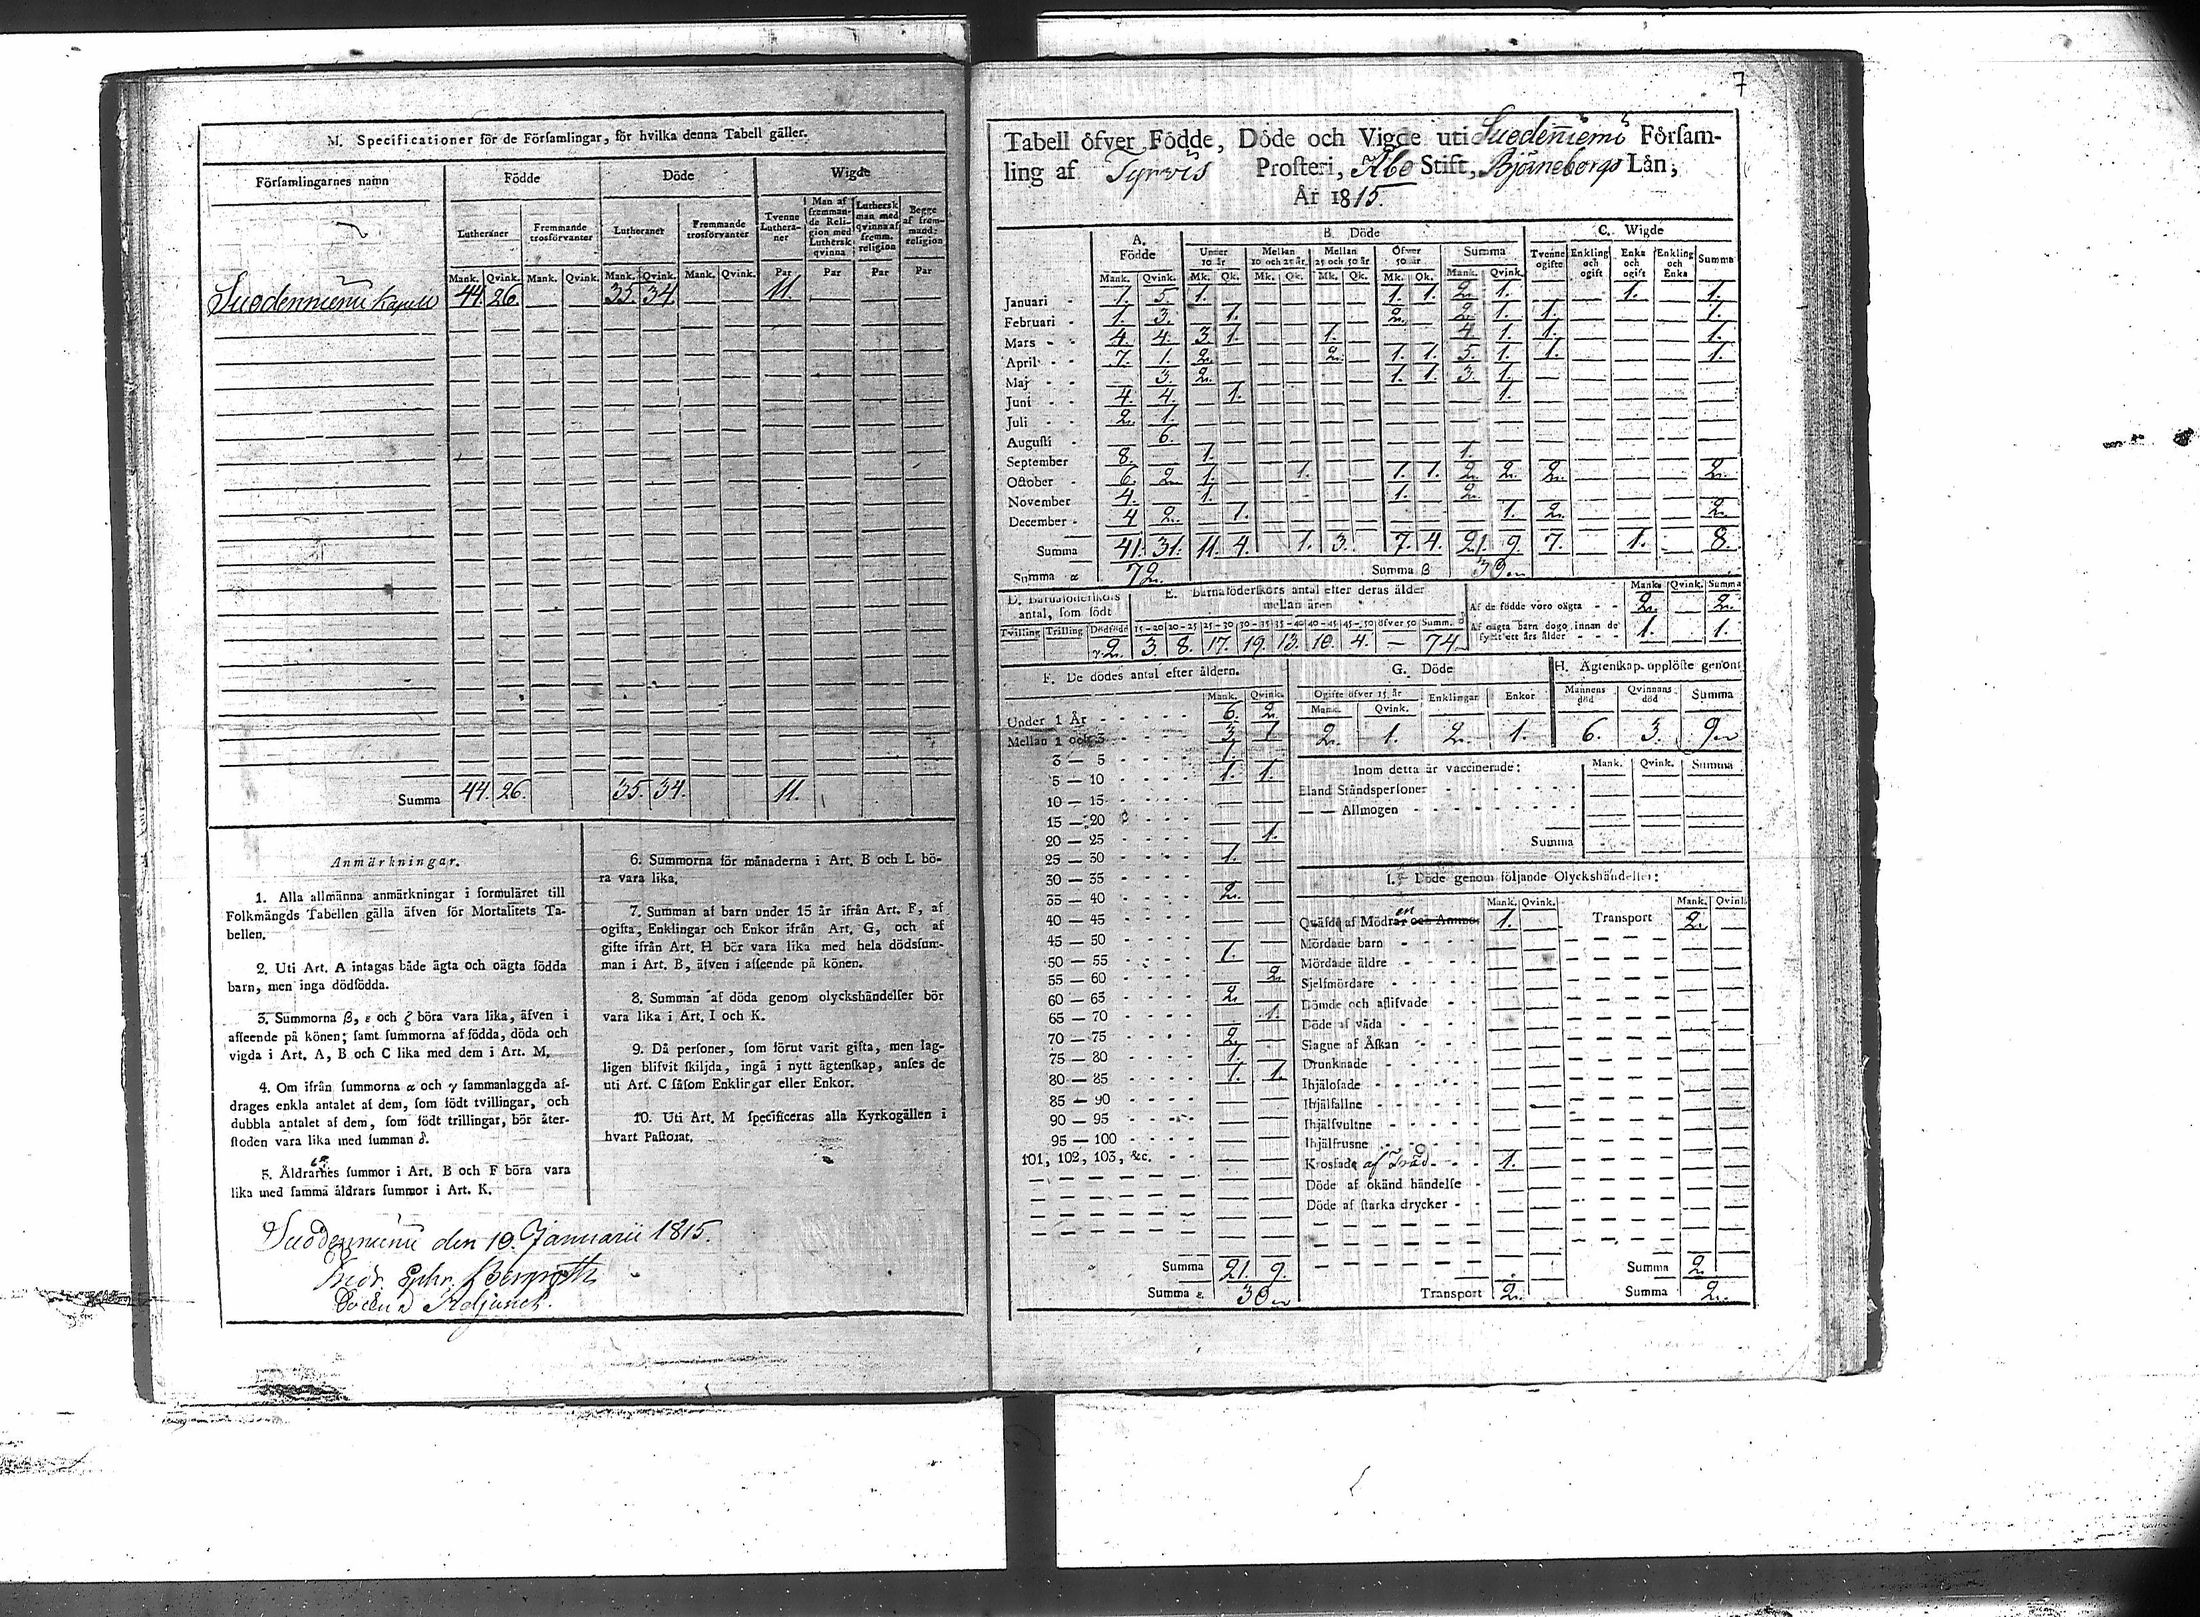 M. Specificationer för de Församlingar, för hvilka denna Tabell gäller.
Församlingarnes namn Födde Döde Wigde
Lutheraner Fremmande trosförvanter Lutheraner Fremmande trosförvanter Tvenne Lutheraner Man af fremmande Religion med Luthersk qvinna Luthersk man med qvinna af fremm. religion Begge af fremmand: religion
Mank. Qvink. Mank. Qvink. Mank. Qvink. Mank. Qvink. Par Par Par Par
Suodenniemi Kapell 44. 26. — — 35. 34. — — 11. — — —
Summa 44. 26. 35. 34. 11.
Anmärkningar.
1. Alla allmänna anmärkningar i formuläret till
Folkmängds Tabellen gälla äfven för Mortalitets Ta-
bellen.
2. Uti Art. A intagas både ägta och oägta födda
barn, men inga dödfödda.
3. Summorna β, ε och ζ böra vara lika, äfven i
afseende på könen; samt summorna af födda, döda och
vigda i Art. A, B och C lika med dem i Art. M.
4. Om ifrån summorna α och γ sammanlaggda af-
drages enkla antalet af dem, som födt tvillingar, och
dubbla antalet af dem, som födt trillingar, bör åter-
stoden vara lika med summan δ.
5. Åldrarnes summor i Art. B och F böra vara
lika med samma åldrars summor i Art. K.
6. Summorna för månaderna i Art. B och L bö-
ra vara lika.
7. Summan af barn under 15 år ifrån Art. F, af
ogifta, Enklingar och Enkor ifrån Art. G, och af
gifte ifrån Art. H bör vara lika med hela dödssum-
man i Art. B, äfven i afseende på könen.
8. Summan af döda genom olyckshändelser bör
vara lika i Art. I och K.
9. Då personer, som förut varit gifta, men lag-
ligen blifvit skiljda, ingå i nytt ägtenskap, anses de
uti Art. C såsom Enklingar eller Enkor.
10. Uti Art. M specificeras alla Kyrkogällen i
hvart Pastorat.
Suodenniemi den 10. Januarii 1815.
Andr. Ephr. Bergroth
Adjunct.
7
Tabell öfver Födde, Döde och Vigde uti Suodenniemi Församling
ling af Tyrvis Prosteri, Åbo Stift, Björneborgs Län,
År 1815.
A. Födde B. Döde C. Wigde
Under 10 år Mellan 10 och 25 år. Mellan 25 och 50 år Öfver 50 år Summa Tvenne ogifte Enkling och ogift Enka och ogift Enkling och Enka Summa
Mank. Qvink. Mk. Qk. Mk. Qk. Mk. Qk. Mk. Qk. Mank. Qvink.
Januari 1. 5. 1. — — — — — 1. 1. 2. 1. — — 1. — 1.
Februari 1. 3. — 1. — — — — 2. — 2. 1. 1. — — — 1.
Mars 4. 4. 3. 1. — — 1. — — — 4. 1. 1. — — — 1.
April 7. 1. 2. — — — 2. — 1. 1. 5. 1. 1. — — — 1.
Maj — 3. 2. — — — — — 1. 1. 3. 1. — — — — —
Juni 4. 4. — 1. — — — — — — — 1. — — — — —
Juli 2. 1. — — — — — — — — — — — — — — —
Augusti — 6. — — — — — — — — — — — — — — —
September 8. — 1. — — — — — — — 1. — — — — — —
October 6. 2. 1. — — 1. — — 1. 1. 2. 2. 2. — — — 2.
November 4. — 1. — — — — — 1. — 2. — — — — — —
December 4 2. — 1. — — — — — — — 1. 2. — — — 2.
Summa 41. 31. 11. 4. 1. 3. 7. 4. 21. 9. 7. 1. 8.
Summa α 72. Summa β 30
D. Barnaföderskors antal, som födt
Tvilling Trilling Dödfödd
γ 2.
E. Barnaföderskors antal efter deras ålder mellan åren
15-20 20-25 25-30 30-35 35-40 40-45 45-50 öfver 50 Summ. δ
3. 8. 17. 19. 13. 10. 4. — 74
Mank. Qvink. Summa
Af de födde voro oägta 2. — 2.
Af oägta barn dogo innan de fyllt ett års ålder 1. — 1.
F. De dödes antal efter åldern.
Mank. Qvink.
Under 1 År 6. 2.
Mellan 1 och 3 3. 1
3 — 5 1. —
5 — 10 1. 1.
10 — 15 — —
15 — 20 — —
20 — 25 — 1.
25 — 30 1. —
30 — 35 — —
35 — 40 2. —
40 — 45 — —
45 — 50 — —
50 — 55 1. —
55 — 60 — 2.
60 — 65 2. —
65 — 70 — 1.
70 — 75 2. —
75 — 80 1. —
80 — 85 1. 1.
85 — 90 — —
90 — 95 — —
95 — 100 — —
101, 102, 103, &c. — —
Summa 21. 9.
Summa ε 30
G. Döde
Ogifte öfver 15 år Enklingar Enkor
Mank. Qvink.
2. 1. 2. 1.
H. Ägtenskap upplöste genom
Mannens död Qvinnans död Summa
6. 3. 9
Inom detta år vaccinerade: Mank. Qvink. Summa
Bland Ståndspersoner
— — Allmogen
Summa
I. Döde genom följande Olyckshändelser:
Mank. Qvink. Mank. Qvink.
Qväfde af Mödrar en och Ammor 1. Transport 2.
Mördade barn
Mördade äldre
Sjelfmördare
Dömde och aflifvade
Döde af våda
Slagne af Åskan
Drunknade
Ihjälosade
Ihjälfallne
Ihjälsvultne
Ihjälfrusne
Krossade af Träd 1.
Döde af okänd händelse
Döde af starka drycker
Summa 2.
Transport 2. Summa 2.